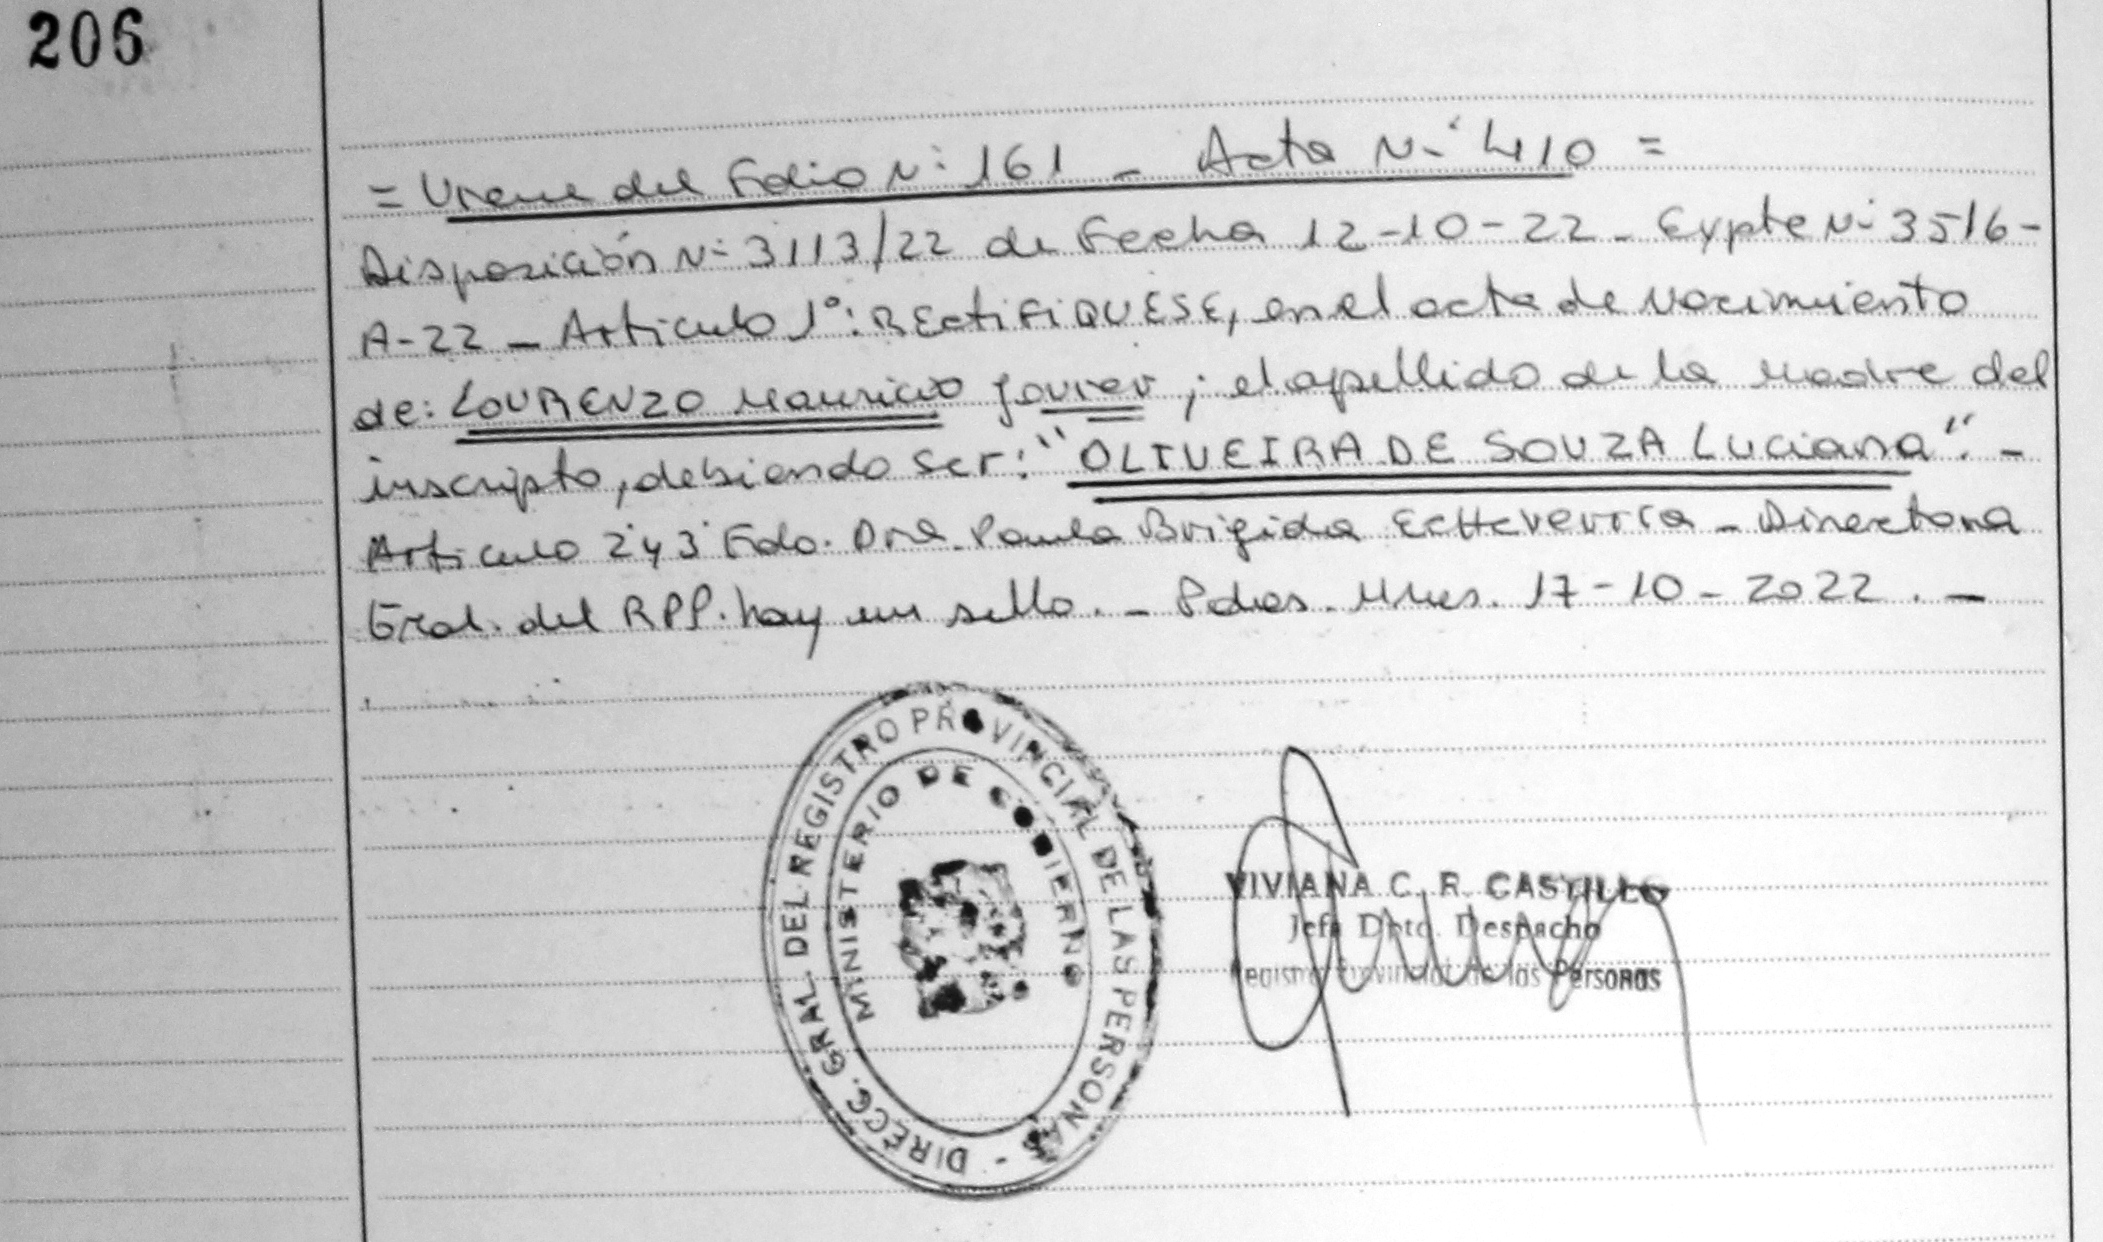 206
= Viene del Folio N: 161 - Acta N: 410 =
Disposición N: 3113/22 de Fecha 12-10-22 - Expte N: 3516-
A-22 - Articulo 1°: RECTIFIQUESE, en el acta de nacimiento
de: LOURENZO Mauricio Javier; el apellido de la madre del
inscripto, debiendo ser: "OLIVEIRA DE SOUZA Luciana". -
Articulo 2 y 3 Fdo. Dra. Paula Brigida Echeverria - Directora
Gral. del RPP. hay un sello. - Pdas. Mnes. 17-10-2022. -
DIRECC. GRAL. DEL REGISTRO PROVINCIAL DE LAS PERSONAS -
MINISTERIO DE GOBIERNO
VIVIANA C. R. CASTILLO
Jefa Dpto. Despacho
Registro Provincial de las Personas